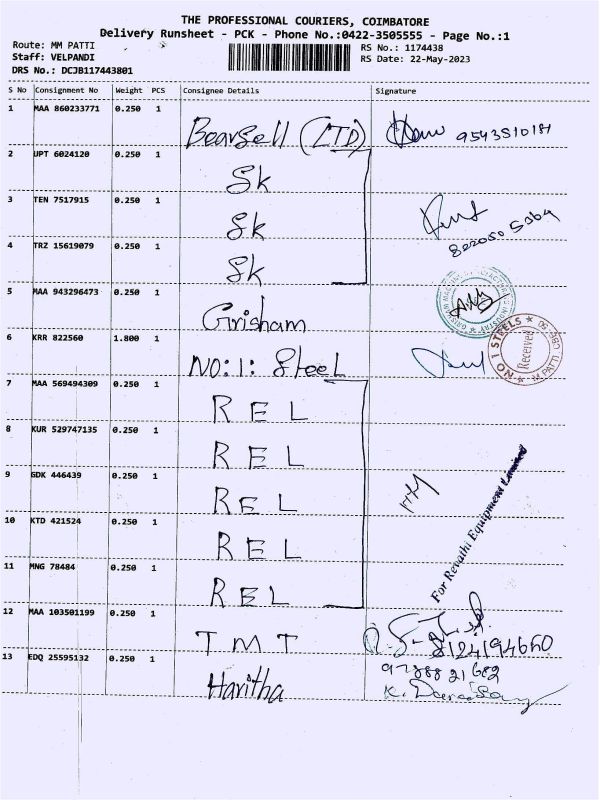 THE PROFESSIONAL COURIERS, COIMBATORE
Delivery Runsheet - PCK - Phone No.:0422-3505555 - Page No.:1
Route: MM PATTI RS No.: 1174438
Staff: VELPANDI RS Date: 22-May-2023
DRS No.: DCJB117443801
S No Consignment No Weight PCS Consignee Details Signature
1 MAA 860233771 0.250 1
Bearsell (LTD) 9543810181
2 UPT 6024120 0.250 1
Sk
3 TEN 7517915 0.250 1
Sk
4 TRZ 15619079 0.250 1
Sk
5 MAA 943296473 0.250 1
Grisham
6 KRR 822560 1.800 1
NO:1: Steel
NO 1 STEELS
Received
7 MAA 569494309 0.250 1
REL
8 KUR 529747135 0.250 1
REL
9 GDK 446439 0.250 1
REL
10 KTD 421524 0.250 1
REL
11 MNG 78484 0.250 1
REL
For Revathi Equipment Limited
12 MAA 103501199 0.250 1
TMT 8124194650
13 EDQ 25595132 0.250 1
Haritha